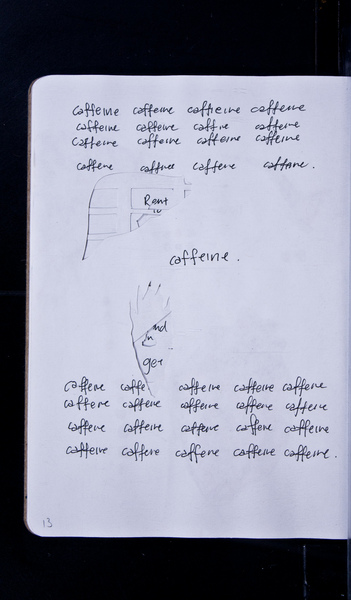 caffeine caffeine caffieine caffeine
caffeine caffeine caffine caffeine
caffeine caffeine caffeine caffeine
caffeine caffiee caffeine caffeine.
Rent
caffeine.
ger
caffeine caffe caffeine caffeine caffeine
caffeine caffeine caffeine caffeine caffeine
caffeine caffeine caffeine caffeine caffeine
caffeine caffeine caffeine caffeine caffeine.
13